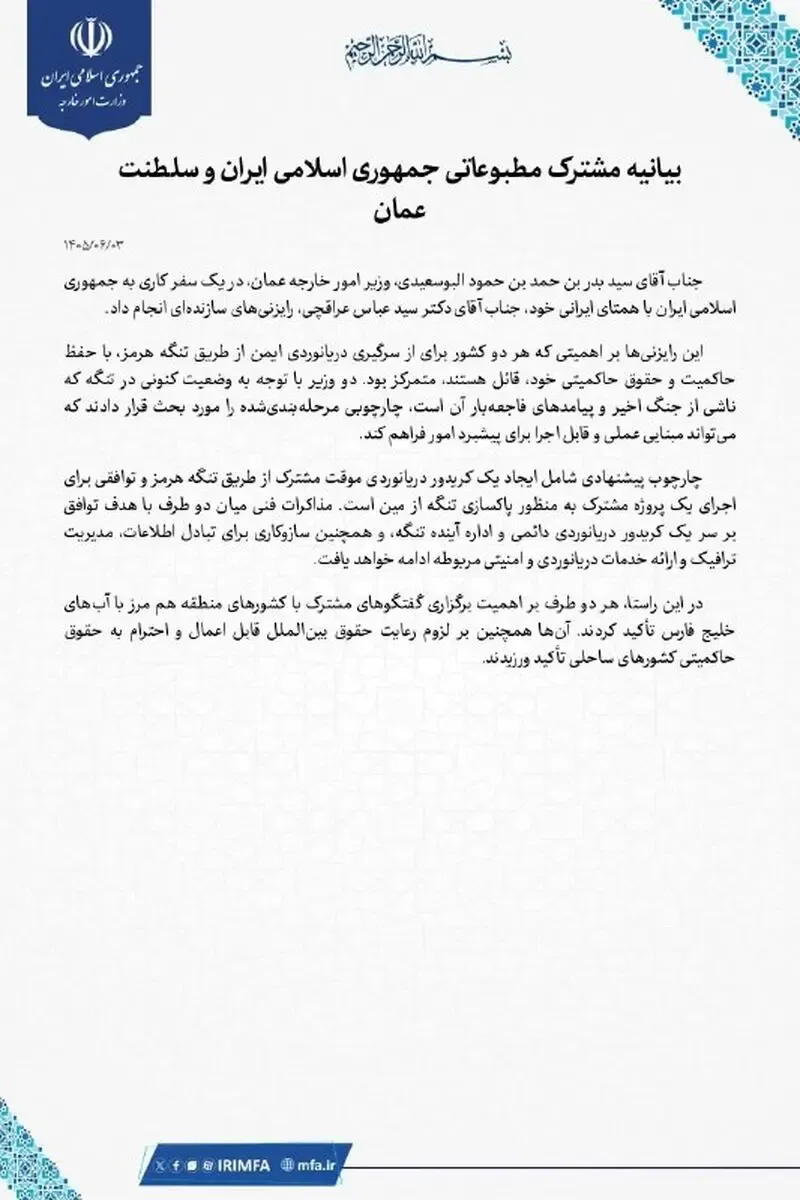 جمهوری اسلامی ایران
وزارت امور خارجه
بسم الله الرحمن الرحیم
بیانیه مشترک مطبوعاتی جمهوری اسلامی ایران و سلطنت
عمان
۱۴۰۵/۰۶/۰۳
جناب آقای سید بدر بن حمد بن حمود البوسعیدی، وزیر امور خارجه عمان، در یک سفر کاری به جمهوری
اسلامی ایران با همتای ایرانی خود، جناب آقای دکتر سید عباس عراقچی، رایزنی‌های سازنده‌ای انجام داد.
این رایزنی‌ها بر اهمیتی که هر دو کشور برای از سرگیری دریانوردی ایمن از طریق تنگه هرمز، با حفظ
حاکمیت و حقوق حاکمیتی خود، قائل هستند، متمرکز بود. دو وزیر با توجه به وضعیت کنونی در تنگه که
ناشی از جنگ اخیر و پیامدهای فاجعه‌بار آن است، چارچوبی مرحله‌بندی‌شده را مورد بحث قرار دادند که
می‌تواند مبنایی عملی و قابل اجرا برای پیشبرد امور فراهم کند.
چارچوب پیشنهادی شامل ایجاد یک کریدور دریانوردی موقت مشترک از طریق تنگه هرمز و توافقی برای
اجرای یک پروژه مشترک به منظور پاکسازی تنگه از مین است. مذاکرات فنی میان دو طرف با هدف توافق
بر سر یک کریدور دریانوردی دائمی و اداره آینده تنگه، و همچنین سازوکاری برای تبادل اطلاعات، مدیریت
ترافیک و ارائه خدمات دریانوردی و امنیتی مربوطه ادامه خواهد یافت.
در این راستا، هر دو طرف بر اهمیت برگزاری گفتگوهای مشترک با کشورهای منطقه هم مرز با آب‌های
خلیج فارس تأکید کردند. آن‌ها همچنین بر لزوم رعایت حقوق بین‌الملل قابل اعمال و احترام به حقوق
حاکمیتی کشورهای ساحلی تأکید ورزیدند.
IRIMFA mfa.ir